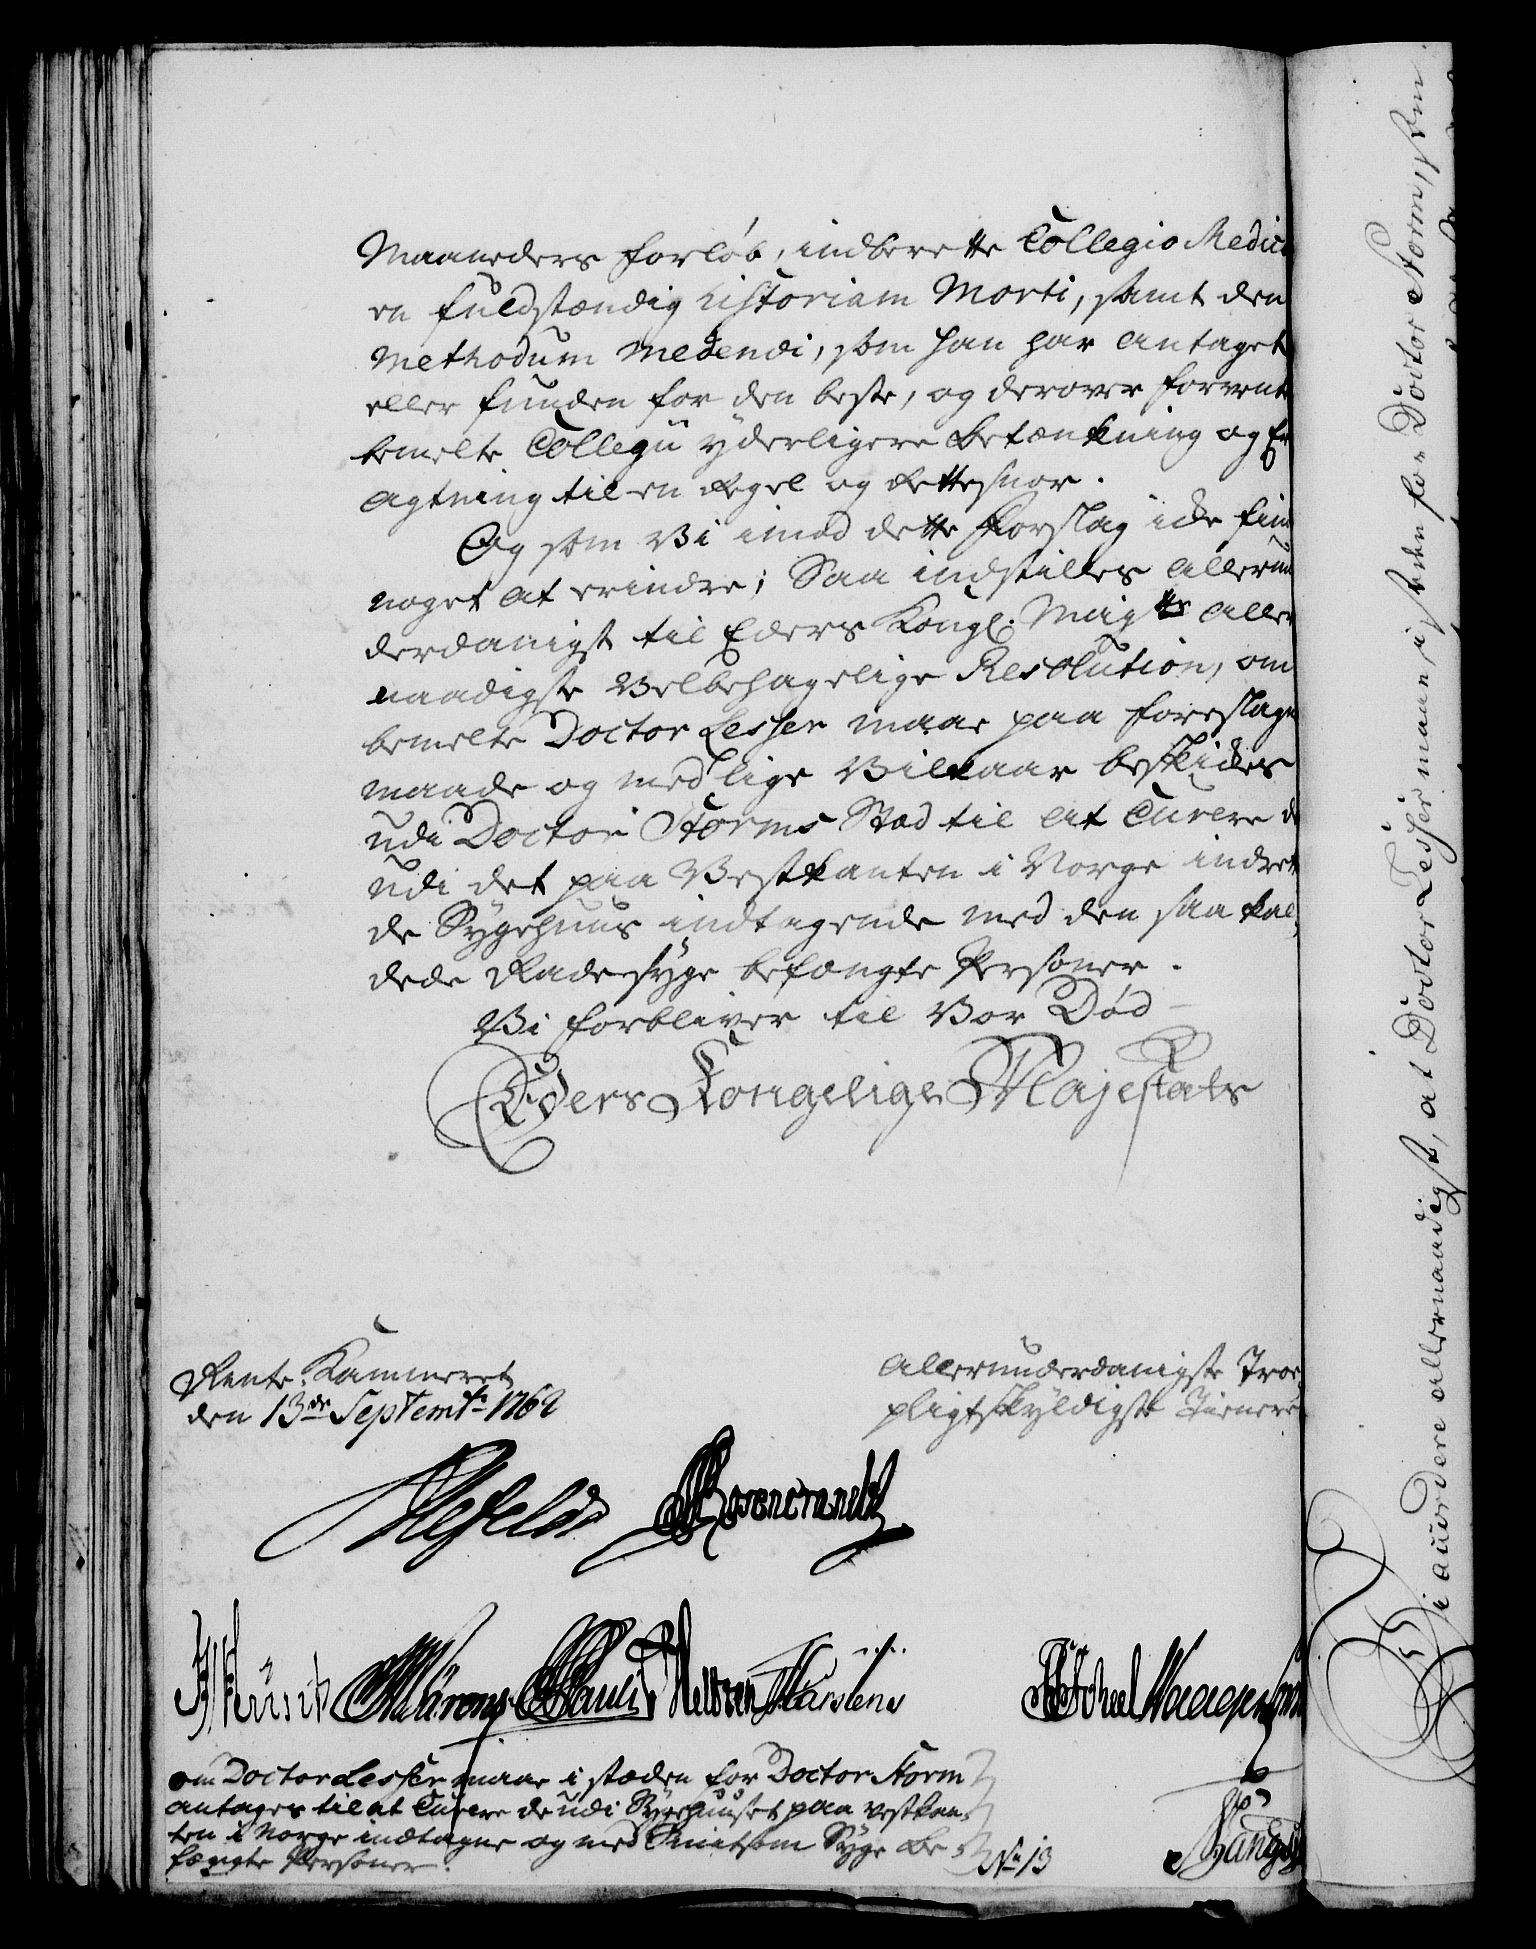 Maaneders forløb, indberette Collegio Medico
en fuldstændig historiam Morbi, samt den
Methodum medendi, som han har antaget
eller funden for den beste, og derover forvente
bemelte Collegii yderligere betænkning og Er
agtning til en Regel og Rettesnor.
Og som Vi imod dette Forslag icke find
noget at erindre; Saa indstilles allerun
derdanigst til Eders Kongl. Maytts aller
naadigste Velbehagelige Resolution, om
bemelte Doctor Lesser maae paa foreslagne
maade og med lige Vilkaar beskickes
udi Doctor Storms Stæd til at Curere de
udi det paa Vestkanten i Norge indrette
de Sygehuus indtagende med den saa kal
dede Radesyge befængte Personer.
Vi forbliver til Vor Død
Eders Kongelige Majestæts
Rente-Kammeret
den 13de Septembr 1762
allerunderdanigste Troe
pligtskyldigste Tienere
Rosencrantz
om Doctor Lesser maae i stæden for Doctor Storm
antages til at Curere de udi Sygehuuset paa vestkan
ten i Norge indtagne og med Smitsom Syge be
fængte Personer.
No 13
Vi auordere allernaadigst, at Doctor Lesser maae, i steden for Doctor Storm, som